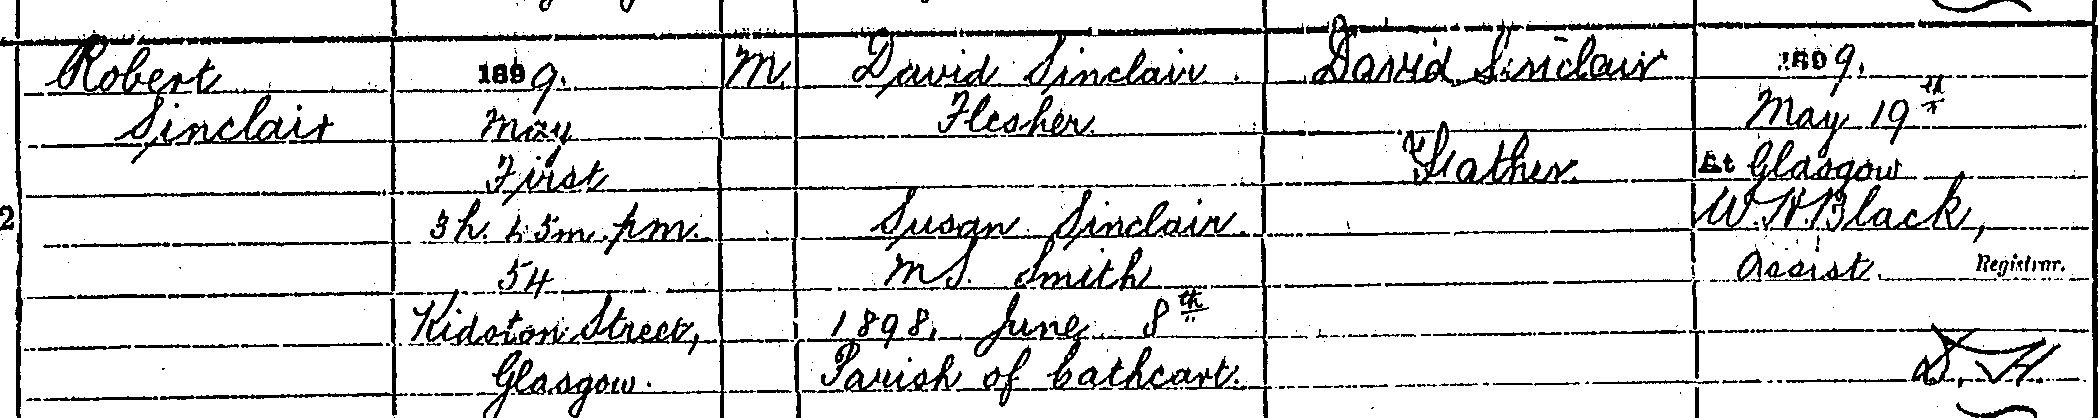 Robert
Sinclair
2
1899.
May
First
3h. 45m. pm.
54
Kidston Street,
Glasgow.
M.
David Sinclair
Flesher.
Susan Sinclair
M.S. Smith
1898, June 8th
Parish of Cathcart.
David Sinclair
Father.
1899.
May 19th
At Glasgow
W. H. Black,
Assist. Registrar.
D. H.